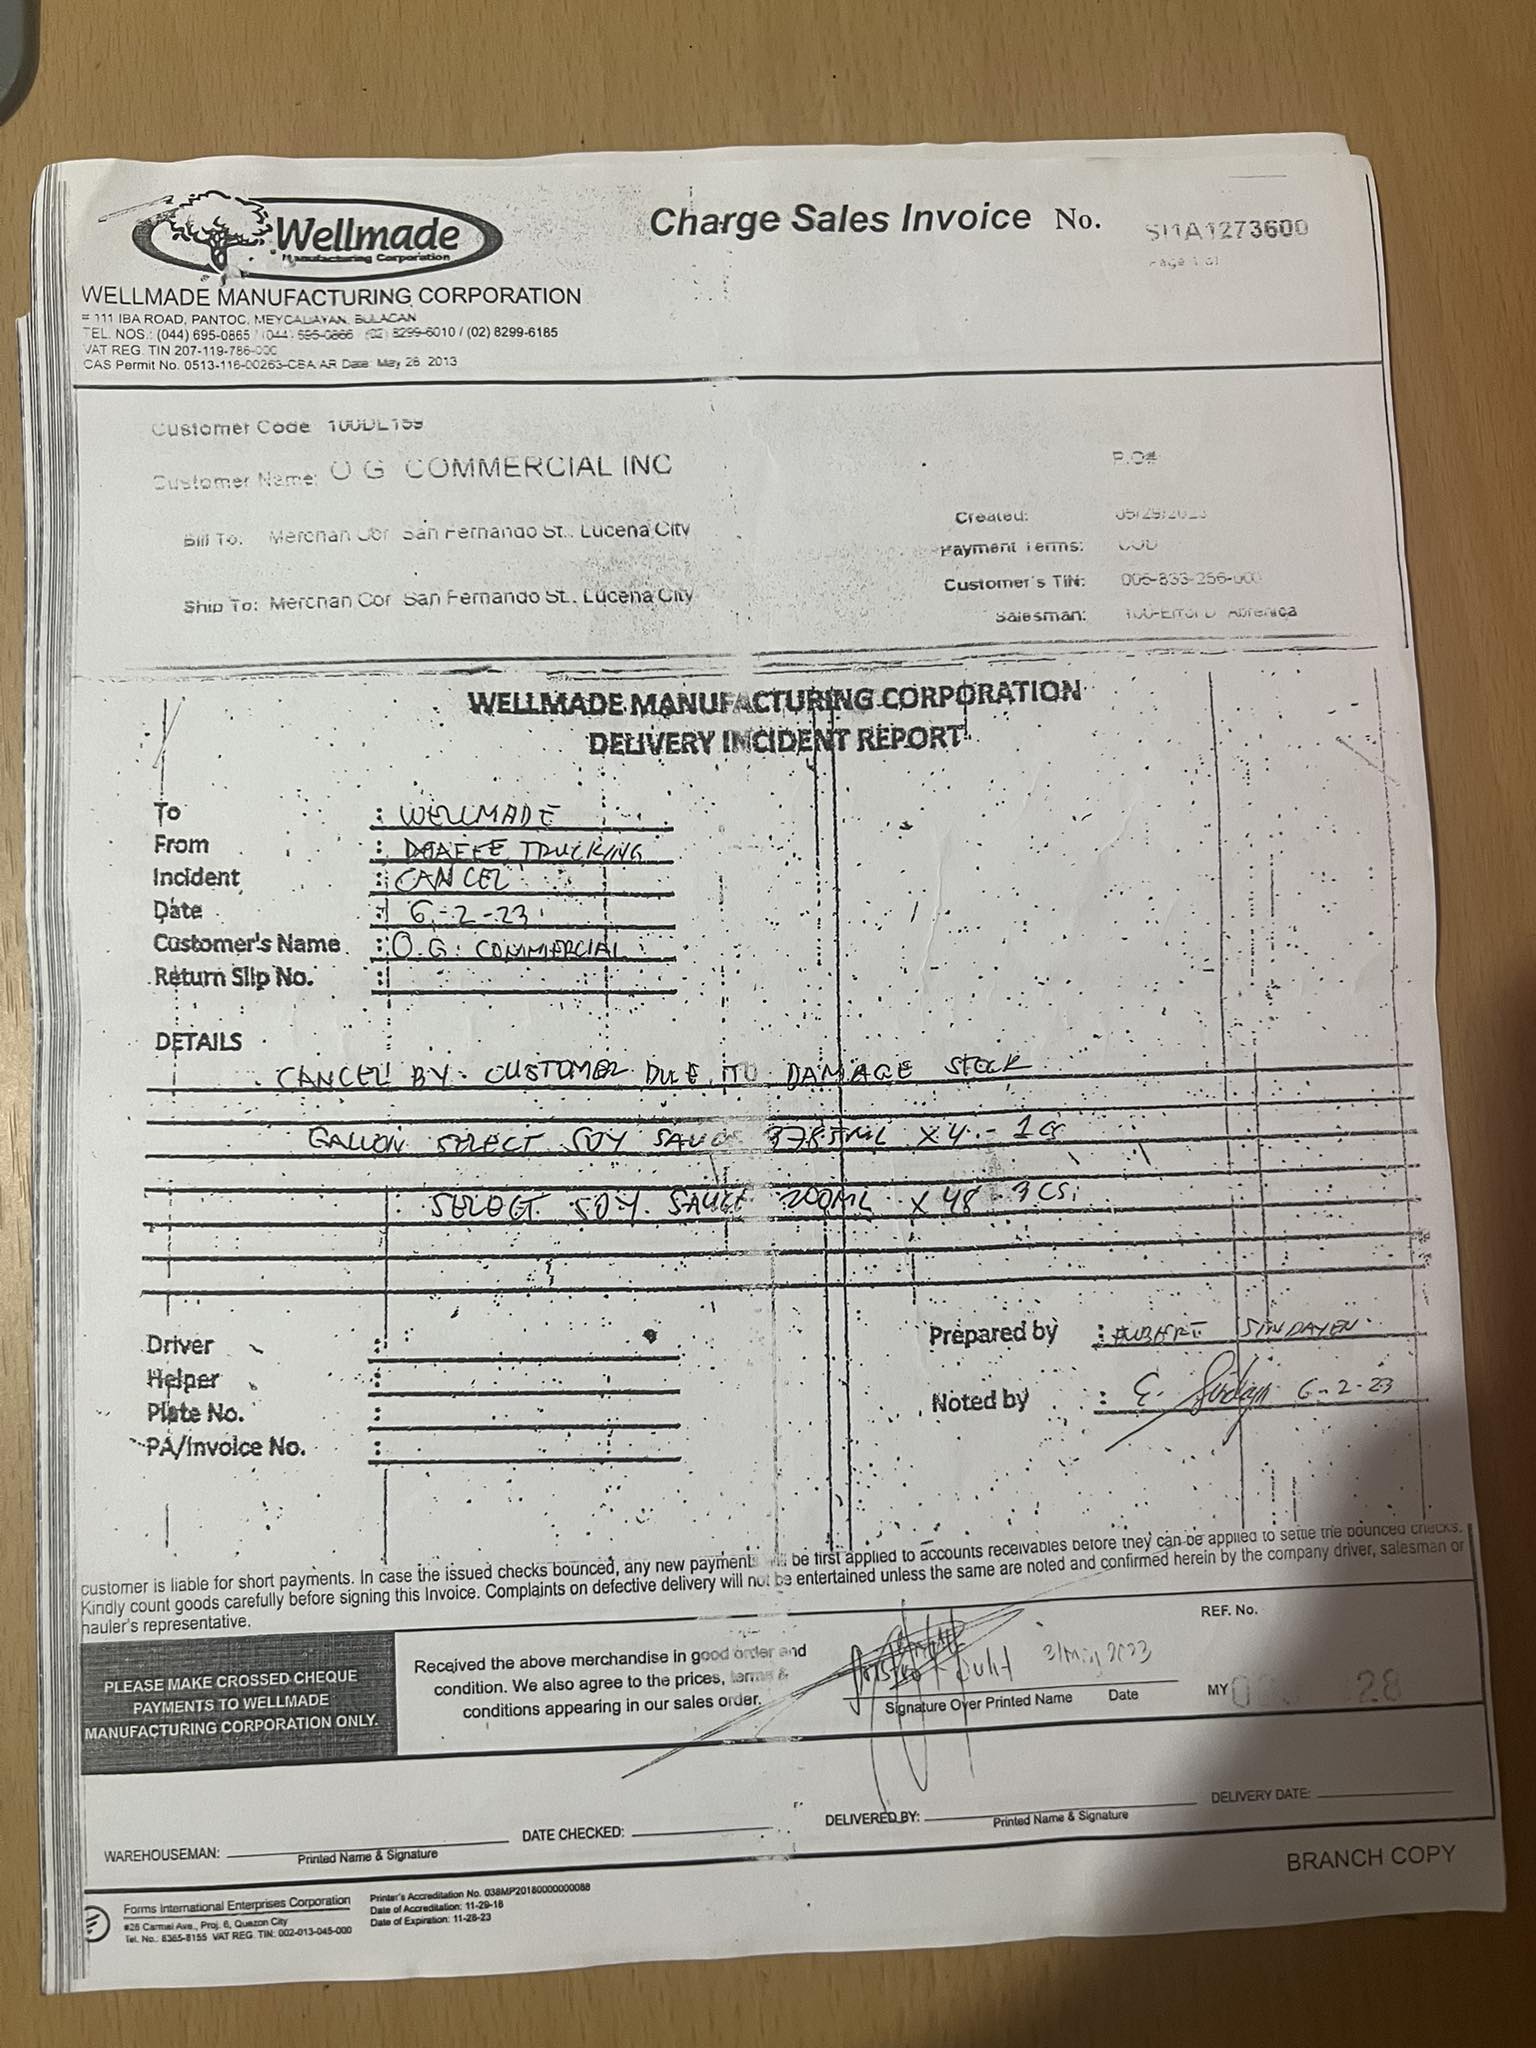 Wellmade
Manufacturing Corporation
Charge Sales Invoice No. SI1A1273600
Page 1 of
WELLMADE MANUFACTURING CORPORATION
# 111 IBA ROAD, PANTOC, MEYCAUAYAN, BULACAN
TEL. NOS.: (044) 695-0865 / (044) 695-0866 / (02) 8299-6010 / (02) 8299-6185
VAT REG. TIN 207-119-786-000
CAS Permit No. 0513-116-00263-CBA/AR Date: May 28 2013
Customer Code: 100DL159
Customer Name: O G COMMERCIAL INC
P.O#
Bill To: Merchan Cor San Fernando St., Lucena City
Created: 05/29/2023
Payment Terms: COD
Ship To: Merchan Cor San Fernando St., Lucena City
Customer's TIN: 006-833-256-000
Salesman: 100-Errol D Abrenica
WELLMADE MANUFACTURING CORPORATION
DELIVERY INCIDENT REPORT
To : WELLMADE
From : TRUCKING
Incident : CANCEL
Date : 6-2-23
Customer's Name : O.G. COMMERCIAL
Return Slip No. :
DETAILS
CANCEL BY CUSTOMER DUE TO DAMAGE STOCK
GALLON SELECT SOY SAUCE 3785ML X 4 - 1 CS
SELECT SOY SAUCE 200ML X 48 - 3 CS
Driver :
Helper :
Plate No. :
PA/Invoice No. :
Prepared by : SINDAYEN
Noted by : E. 6-2-23
customer is liable for short payments. In case the issued checks bounced, any new payment will be first applied to accounts receivables before they can be applied to settle the bounced checks.
Kindly count goods carefully before signing this Invoice. Complaints on defective delivery will not be entertained unless the same are noted and confirmed herein by the company driver, salesman or
hauler's representative.
PLEASE MAKE CROSSED CHEQUE
PAYMENTS TO WELLMADE
MANUFACTURING CORPORATION ONLY.
Received the above merchandise in good order and
condition. We also agree to the prices, terms &
conditions appearing in our sales order.
31 May 2023
Signature Over Printed Name Date
REF. No.
MY
WAREHOUSEMAN:
Printed Name & Signature
DATE CHECKED:
DELIVERED BY:
Printed Name & Signature
DELIVERY DATE:
BRANCH COPY
Forms International Enterprises Corporation
#26 Carmel Ave., Proj. 6, Quezon City
Tel. No.: 8365-8155 VAT REG. TIN: 002-013-045-000
Printer's Accreditation No. 038MP20180000000088
Date of Accreditation: 11-29-18
Date of Expiration: 11-28-23